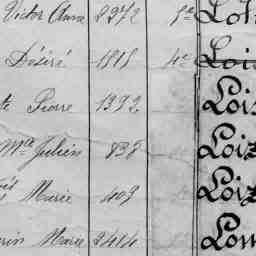 Victor Anne 2972 5e Loh
Désiré 1818 4e Lois
te Pierre 1392 Lois
Mie Julien 838 Loiz
Marie 409 Loiz
rin Marie 2414 Lom